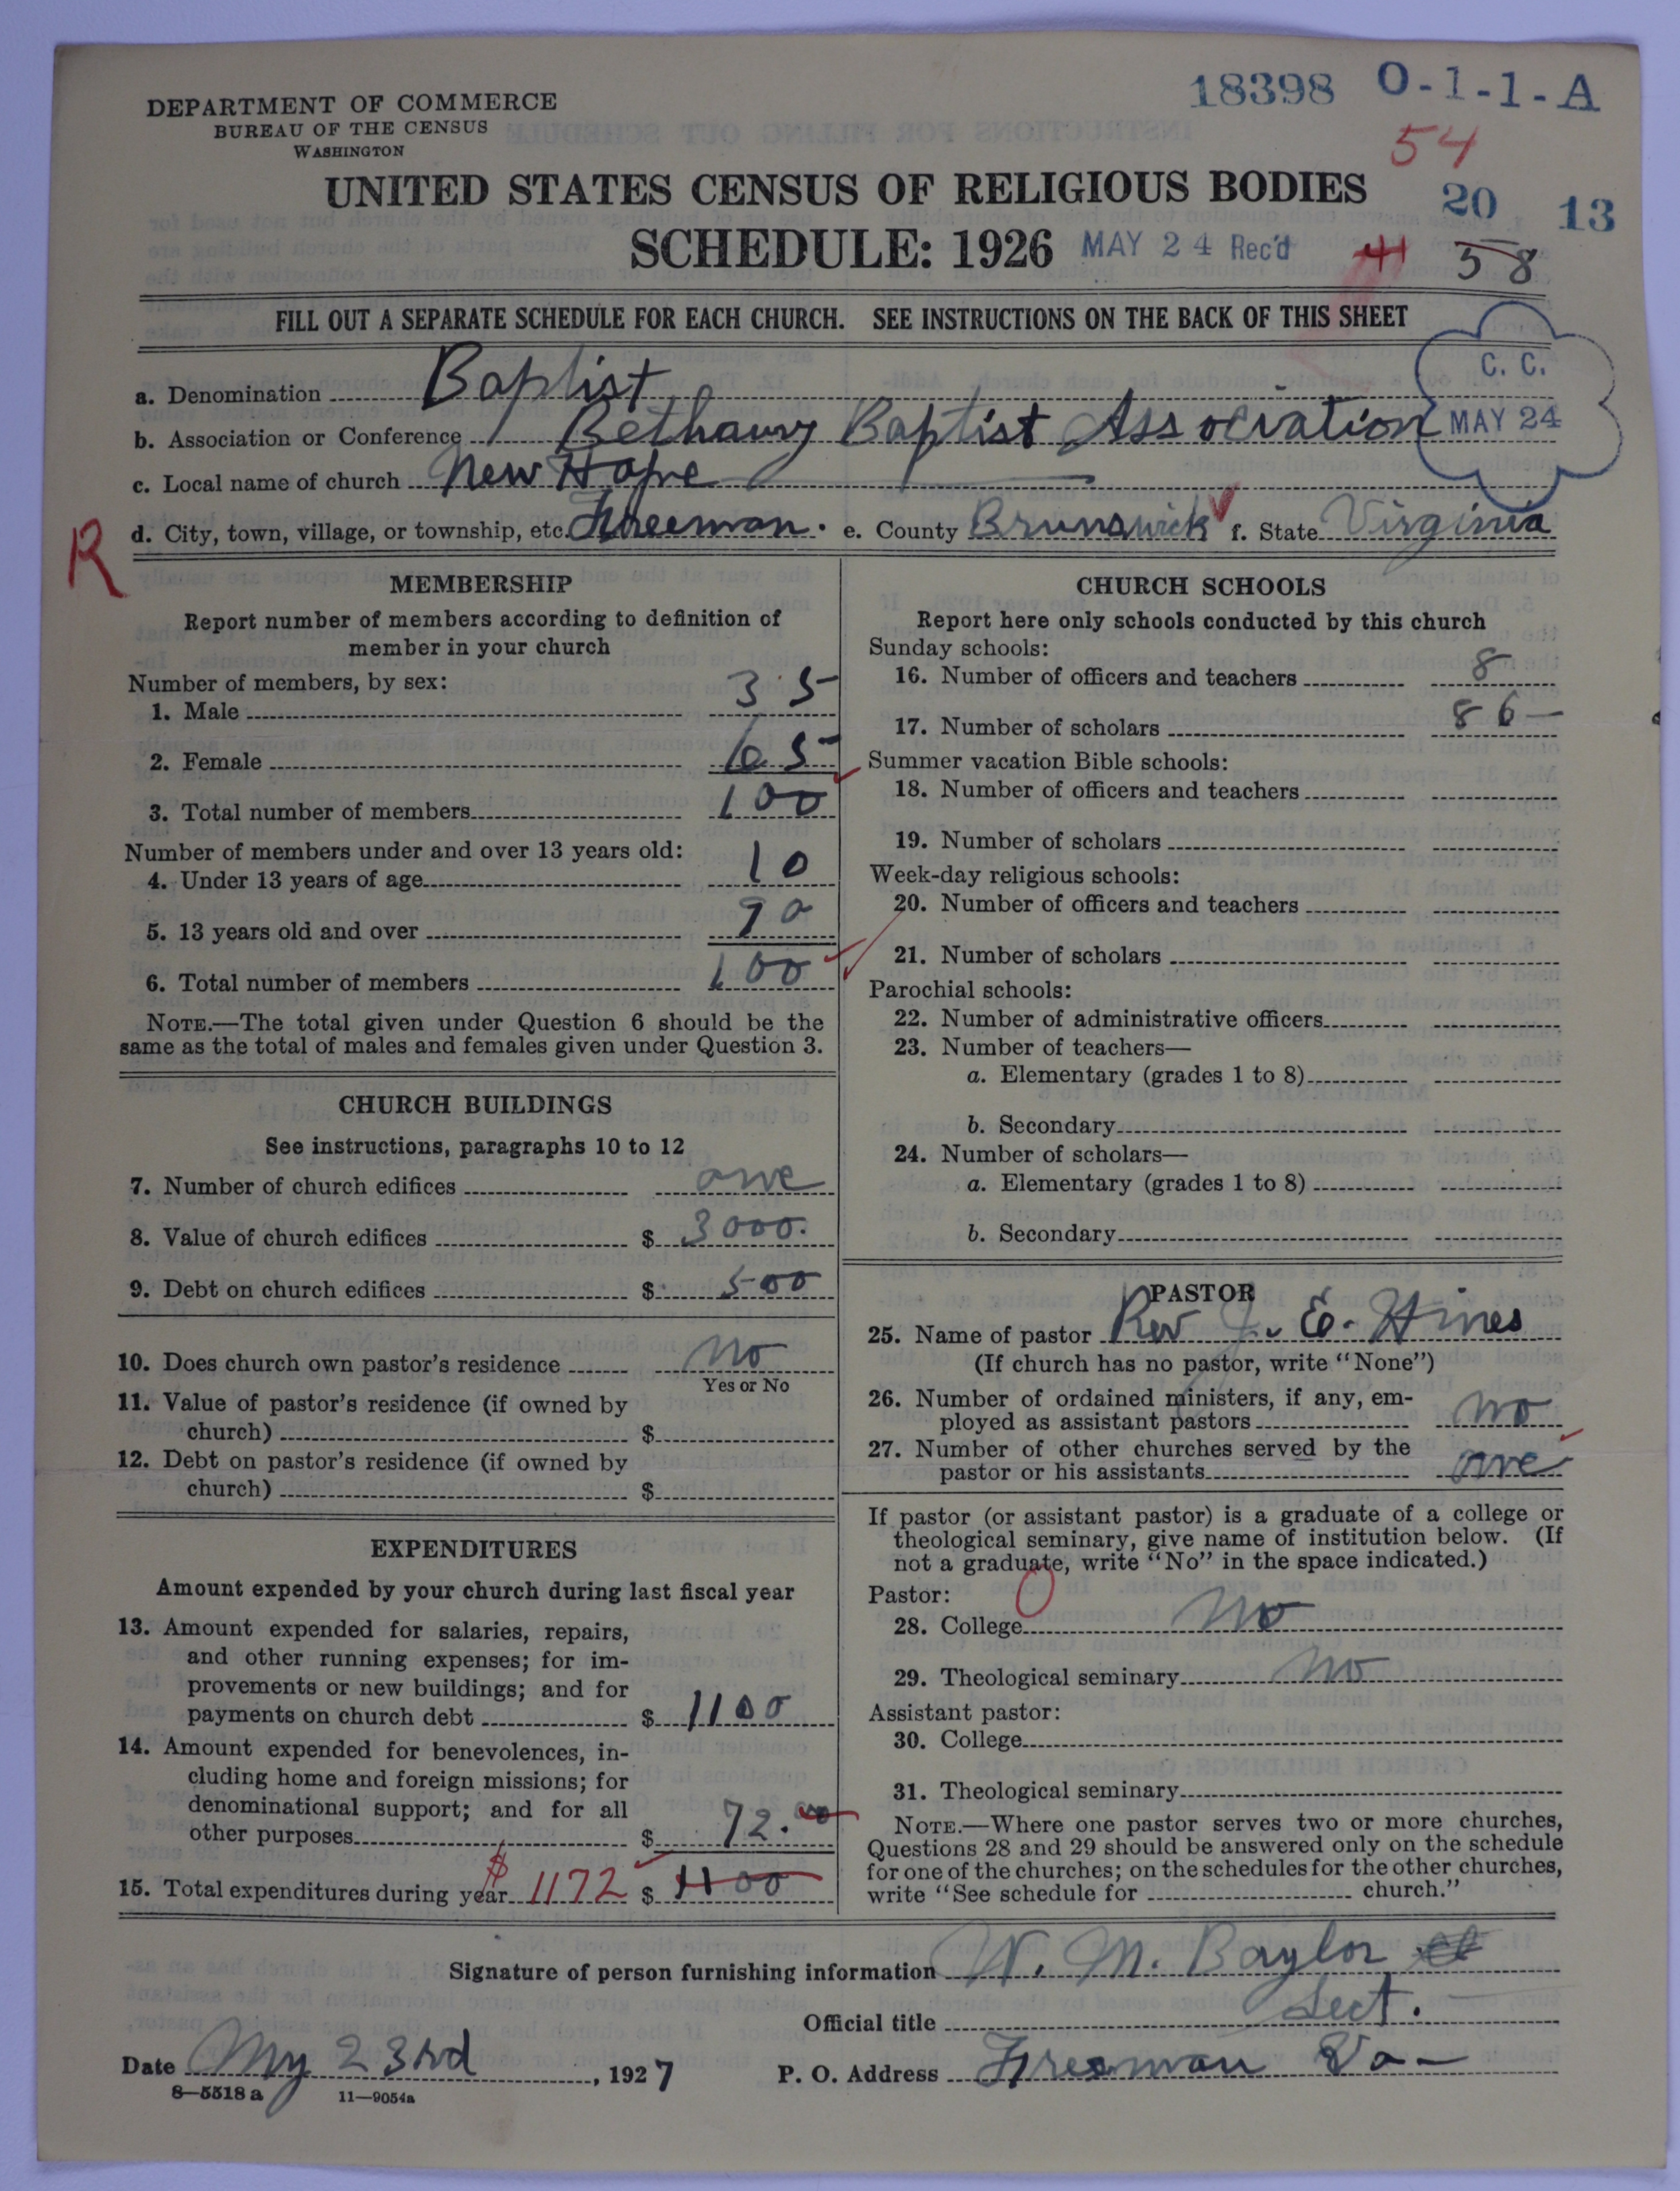 DEPARTMENT OF COMMERCE
BUREAU OF THE CENSUS
WASHINGTON
18398 O-1-1-A
54
UNITED STATES CENSUS OF RELIGIOUS BODIES
20 13
SCHEDULE: 1926 MAY 24 Rec'd 41 58
FILL OUT A SEPARATE SCHEDULE FOR EACH CHURCH. SEE INSTRUCTIONS ON THE BACK OF THIS SHEET
C. C.
MAY 24
a. Denomination Baptist
b. Association or Conference Bethany Baptist Association
c. Local name of church New Hope
R
d. City, town, village, or township, etc. Freeman. e. County Brunswick f. State Virginia
MEMBERSHIP
Report number of members according to definition of
member in your church
Number of members, by sex:
1. Male 35
2. Female 65
3. Total number of members 100
Number of members under and over 13 years old:
4. Under 13 years of age 10
5. 13 years old and over 90
6. Total number of members 100
NOTE.—The total given under Question 6 should be the
same as the total of males and females given under Question 3.
CHURCH BUILDINGS
See instructions, paragraphs 10 to 12
7. Number of church edifices one
8. Value of church edifices $ 3000.
9. Debt on church edifices $ 500
10. Does church own pastor's residence No
Yes or No
11. Value of pastor's residence (if owned by
church) $
12. Debt on pastor's residence (if owned by
church) $
EXPENDITURES
Amount expended by your church during last fiscal year
13. Amount expended for salaries, repairs,
and other running expenses; for im-
provements or new buildings; and for
payments on church debt $ 1100
14. Amount expended for benevolences, in-
cluding home and foreign missions; for
denominational support; and for all
other purposes $ 72.00
15. Total expenditures during year $1172 $ 1100
CHURCH SCHOOLS
Report here only schools conducted by this church
Sunday schools:
16. Number of officers and teachers 8
17. Number of scholars 86
Summer vacation Bible schools:
18. Number of officers and teachers
19. Number of scholars
Week-day religious schools:
20. Number of officers and teachers
21. Number of scholars
Parochial schools:
22. Number of administrative officers
23. Number of teachers—
a. Elementary (grades 1 to 8)
b. Secondary
24. Number of scholars—
a. Elementary (grades 1 to 8)
b. Secondary
PASTOR
25. Name of pastor Rev J. E. Hines
(If church has no pastor, write "None")
26. Number of ordained ministers, if any, em-
ployed as assistant pastors no
27. Number of other churches served by the
pastor or his assistants one
If pastor (or assistant pastor) is a graduate of a college or
theological seminary, give name of institution below. (If
not a graduate, write "No" in the space indicated.)
Pastor:
28. College No
29. Theological seminary No
Assistant pastor:
30. College
31. Theological seminary
NOTE.—Where one pastor serves two or more churches,
Questions 28 and 29 should be answered only on the schedule
for one of the churches; on the schedules for the other churches,
write "See schedule for church."
Signature of person furnishing information W. M. Baylor
Official title Sect.
Date My 23rd, 1927 P. O. Address Freeman Va-
8-5518 a 11-9054a